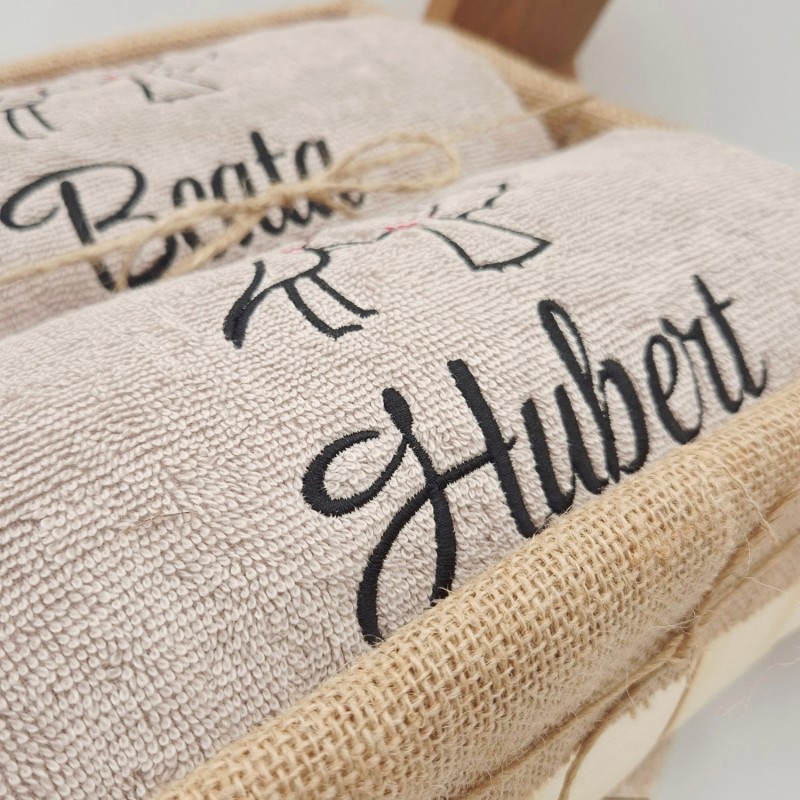 Beata
Hubert